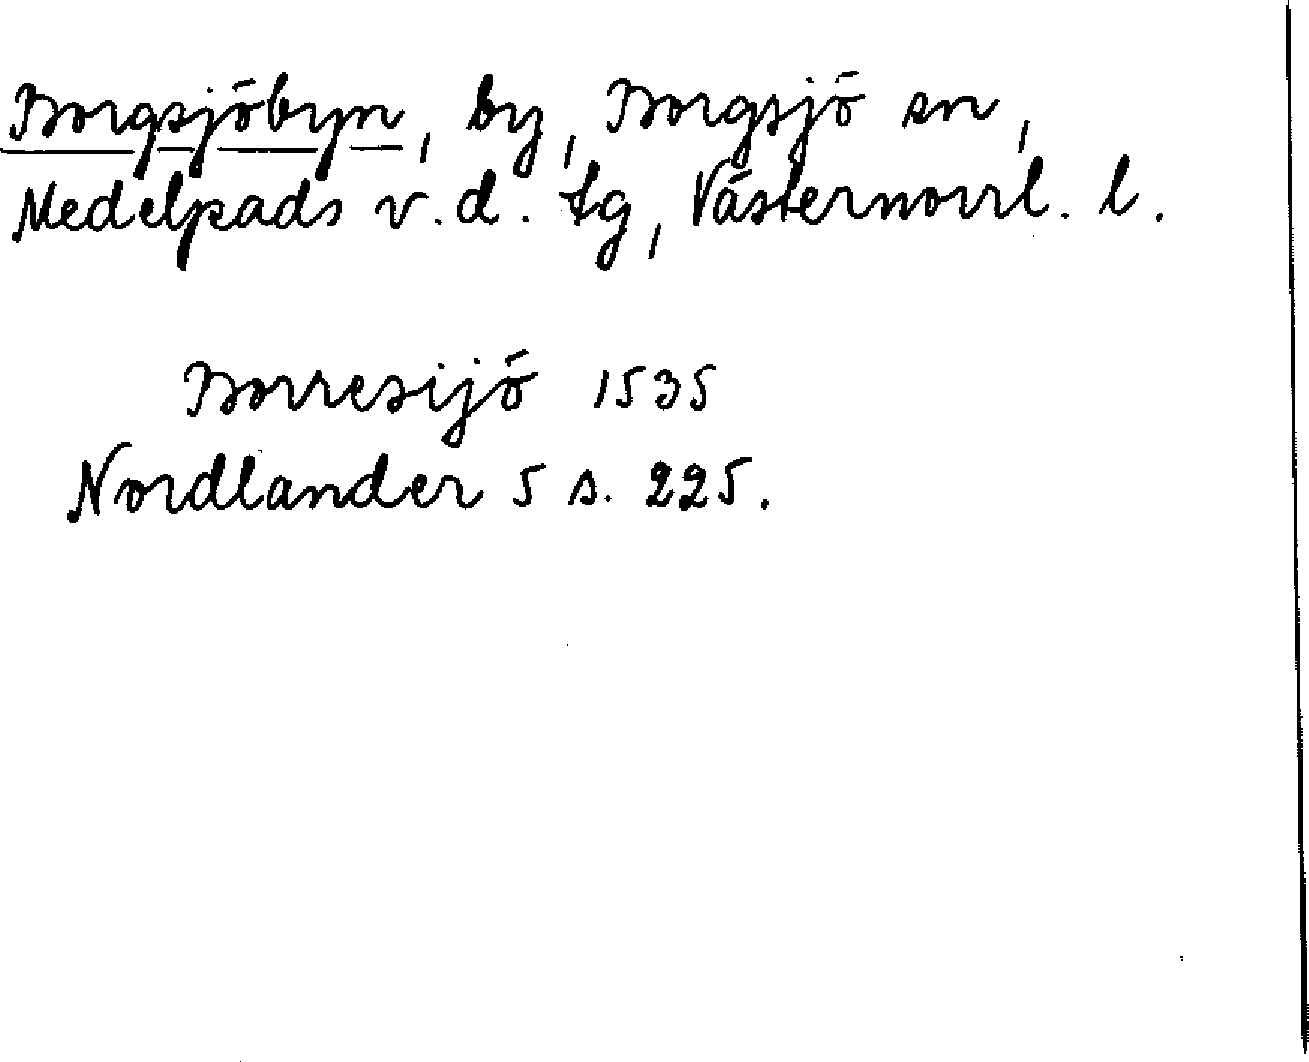 Borgsjöbyn, by, Borgsjö sn,
Medelpads v.d. tg, Västernorrl. l.
Borresijö 1535
Nordlander 5 s. 225.